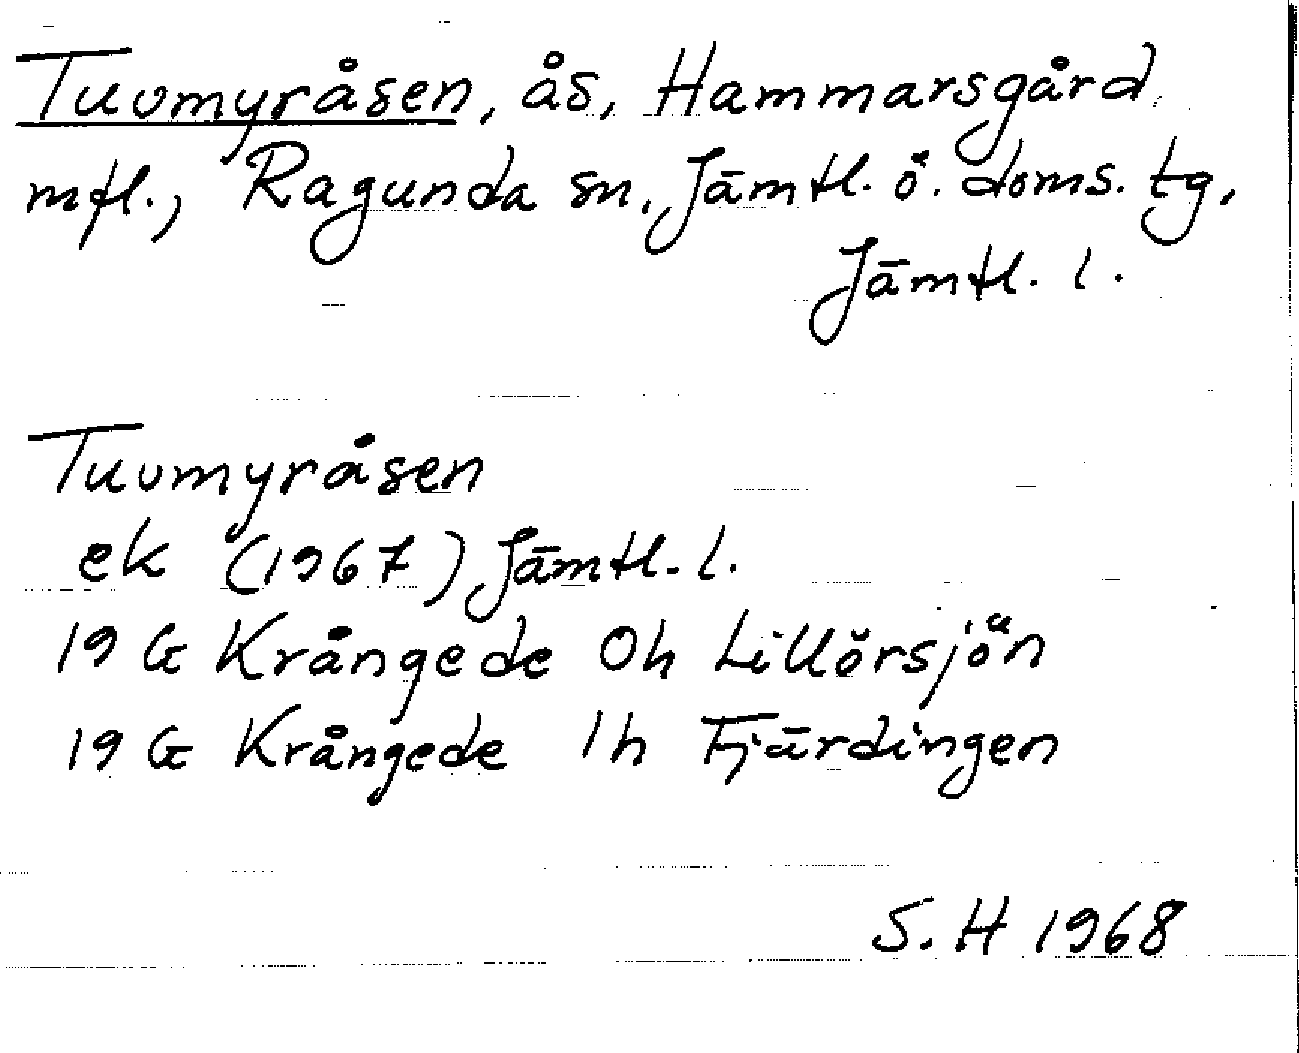 Tuomyråsen, ås, Hammarsgård
mfl., Ragunda sn, Jämtl. ö. doms. tg,
Jämtl. l.
Tuomyråsen
ek (1967) Jämtl. l.
19 G Krångede 0h Lillörsjön
19 G Krångede 1h Fjärdingen
S. H 1968